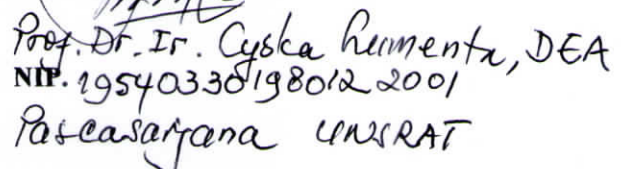 Prof. Dr. Ir. Cyska Lumenta, DEA
NIP. 19540330198012 2001
Pascasarjana UNSRAT